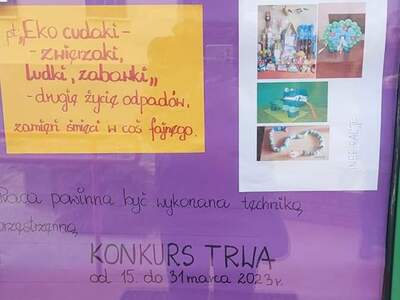 pt. „Eko cudaki -
- zwierzaki,
ludki, zabawki”
- drugie życie odpadów.
zamień śmieci w coś fajnego.
INSPIRACJE
Praca powinna być wykonana techniką
przestrzenną
KONKURS TRWA
od 15. do 31 marca 2023 r.